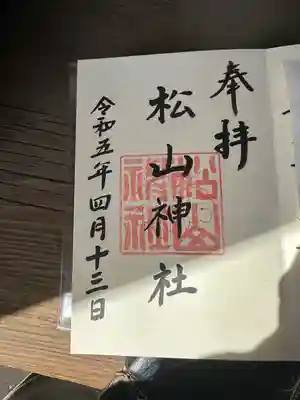 奉拝
松山神社
令和五年四月十三日